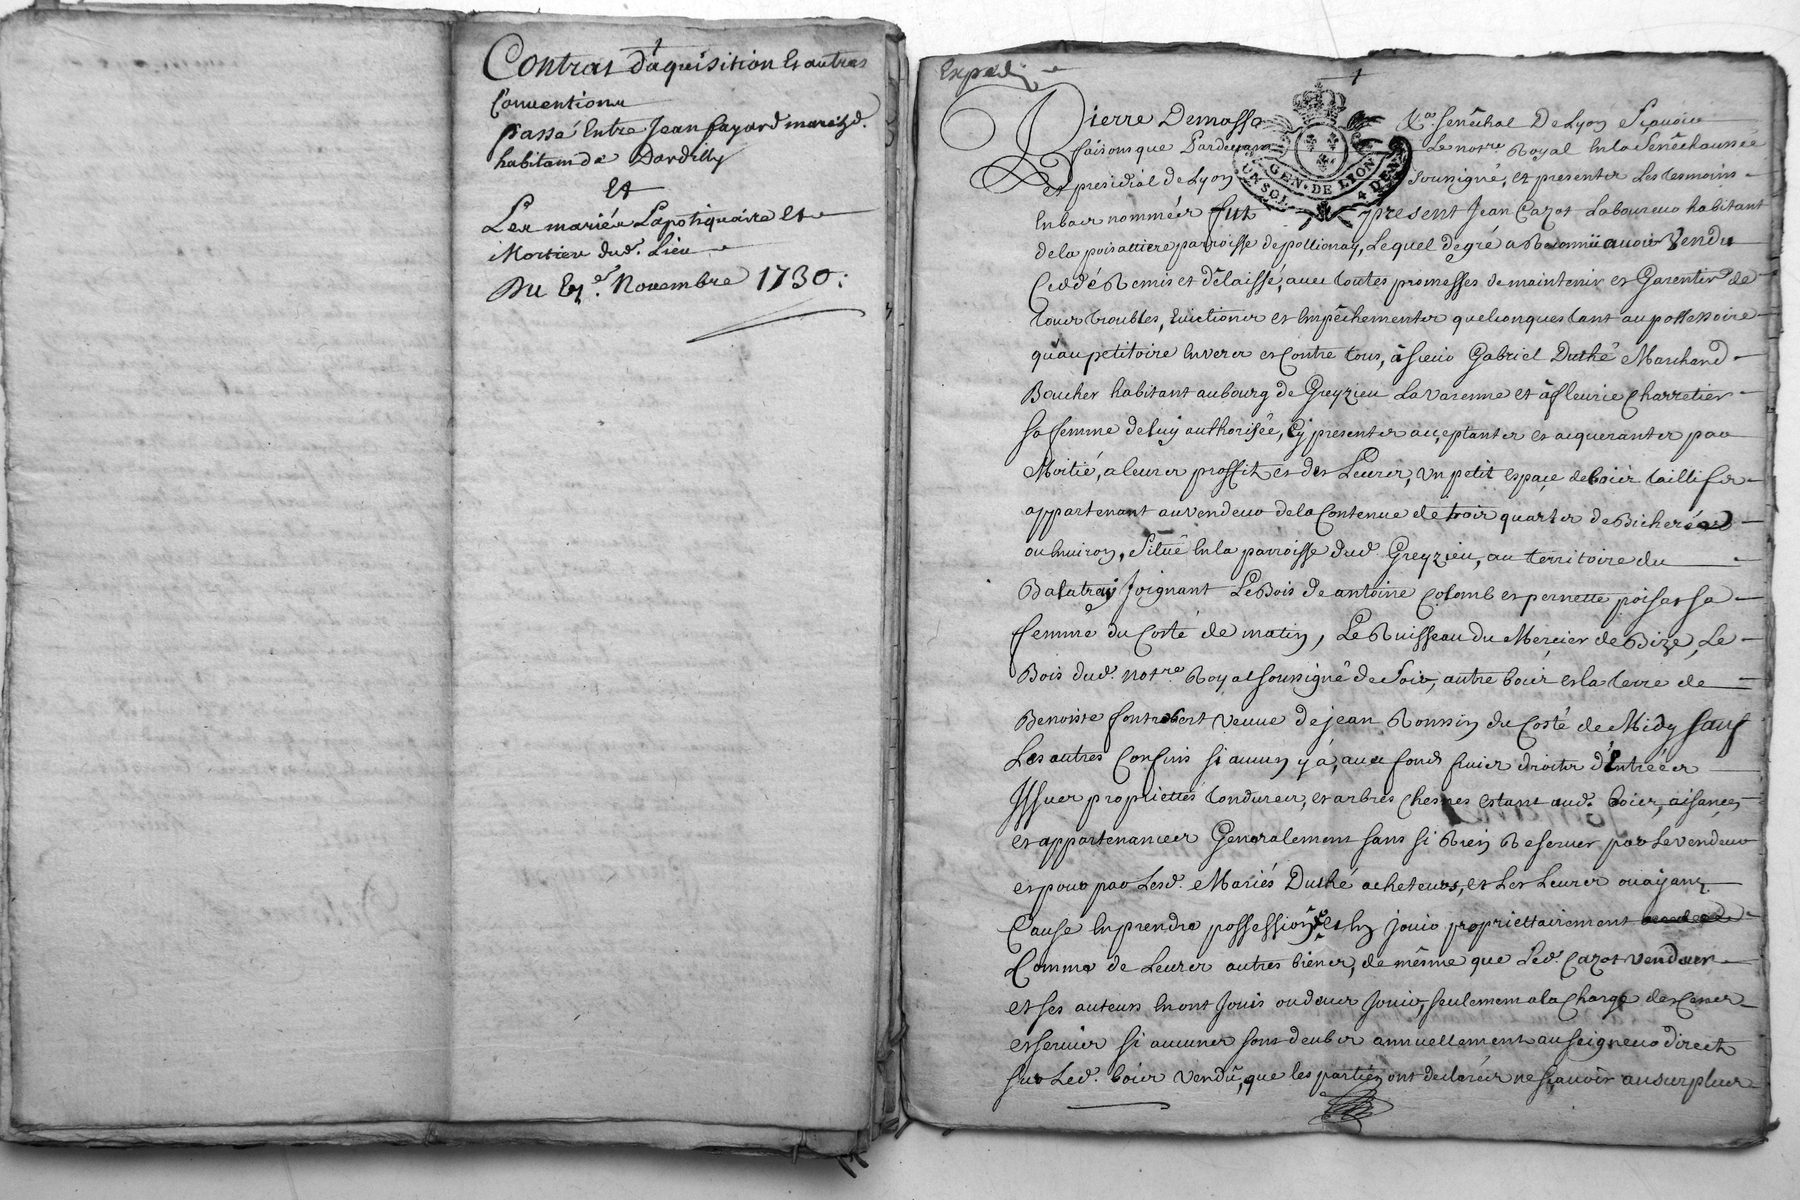 Contrat d'aquisition Et autres
Conventions
passé Entre Jean fayard march.d
habitan de Dardilly
Et
Les mariés Lapotiquaire et
Mortier dud. Lieu
Du Novembre 1730.
Exped
Pierre Demasso S.al senéchal De Lyon Sçavoir
faisons que Pardevant Le not.re Royal En la Senéchaussée
et presidial de Lyon soussigné, et presenter Les tesmoins
En bas nommés fut present Jean Cazot Laboureur habitant
de la poisattiere parroisse de pollionay, Lequel de gré a Reconnü avoir Vendu
Cedé Remis et délaissé, avec toutes promesses de maintenir et Garentir de
tous troubles, Evictions et Empéchements quelconques tant au possessoire
qu'au petitoire Envers et Contre tous, à sieur Gabriel Duthé Marchand
Boucher habitant au bourg de Greyzieu Lavarenne et à fleurie Charretier
sa femme de luy authorisée, Cy presents acceptants et acquerants par
Moitié, a leurs proffit et des Leurs, Un petit espace de bois taillifs
appartenant au vendeur de la Contenue de trois quarts de Bicherée
ou Environ, Situé En la parroisse dud. Greyzieu, au territoire du
Balatray Joignant Le Bois de antoine Colomb et pernette poisat sa
femme du Costé de matin, Le Ruisseau du Mercier de Bize, Le
Bois dud. not.re Royal soussigné de Soir, autre bois et la terre de
Benoiste fontrobert veuve de jean Ronsin du Costé de Midy sauf
Les autres Confins si aucun y à, avec fonds fruits droits d'Entrées
Issues propriettés tondures, et arbres Chesnes estant aud. bois, aisances
et appartenances Generalement sans si Rien Reserver par le vendeur
et pour par Lesd. Mariés Duthé acheteurs, et Les Leurs ou ayant
Cause En prendre possession et En jouir propriettairement
Comme de Leurs autres biens, de même que Led. Cazot vendeur
et ses auteurs En ont Jouis ou deus Jouir, seulement a la Charge des Cens
et servis si aucuns sont deubs annuellement au seigneur direct
sur Led. bois vendu, que les parties ont declarés ne sçavoir au surplus
GEN. DE LION
UN SOL 4 DEN.